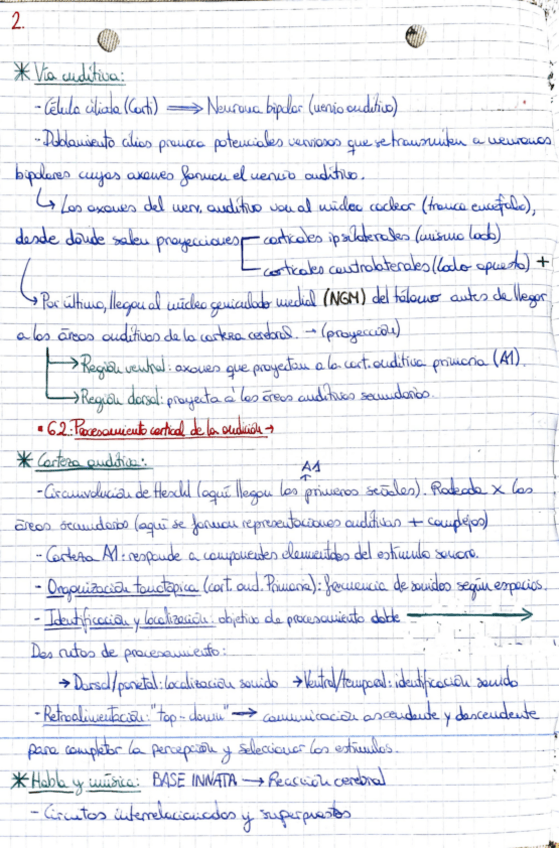 2.
* Vía auditiva:
- Célula ciliada (Corti) ⟹ Neurona bipolar (nervio auditivo)
- Doblamiento cilios provoca potenciales nerviosos que se transmiten a neuronas
bipolares cuyos axones forman el nervio auditivo.
↳ Los axones del nerv. auditivo van al núcleo coclear (tronco encéfalo),
desde donde salen proyecciones corticales ipsilaterales (mismo lado)
corticales contralaterales (lado opuesto) +
↳ Por último, llegan al núcleo geniculado medial (NGM) del tálamo antes de llegar
a las áreas auditivas de la corteza cerebral. → (proyección)
→ Región ventral: axones que proyectan a la cort. auditiva primaria (A1).
→ Región dorsal: proyecta a las áreas auditivas secundarias.
▪ 6.2. Procesamiento cortical de la audición →
* Corteza auditiva:
A1
↑
- Circunvolución de Heschl (aquí llegan las primeras señales). Rodeada x las
áreas secundarias (aquí se forman representaciones auditivas + complejas)
- Corteza A1: responde a componentes elementales del estímulo sonoro.
- Organización tonotópica (cort. aud. Primaria): frecuencia de sonidos según espacios.
- Identificación y localización: objetivo de procesamiento doble →
Dos rutas de procesamiento:
→ Dorsal/parietal: localización sonido → Ventral/temporal: identificación sonido
- Retroalimentación: "top-down" → comunicación ascendente y descendente
para completar la percepción y seleccionar los estímulos.
* Habla y música: BASE INNATA → Reacción cerebral
- Circuitos interrelacionados y superpuestos